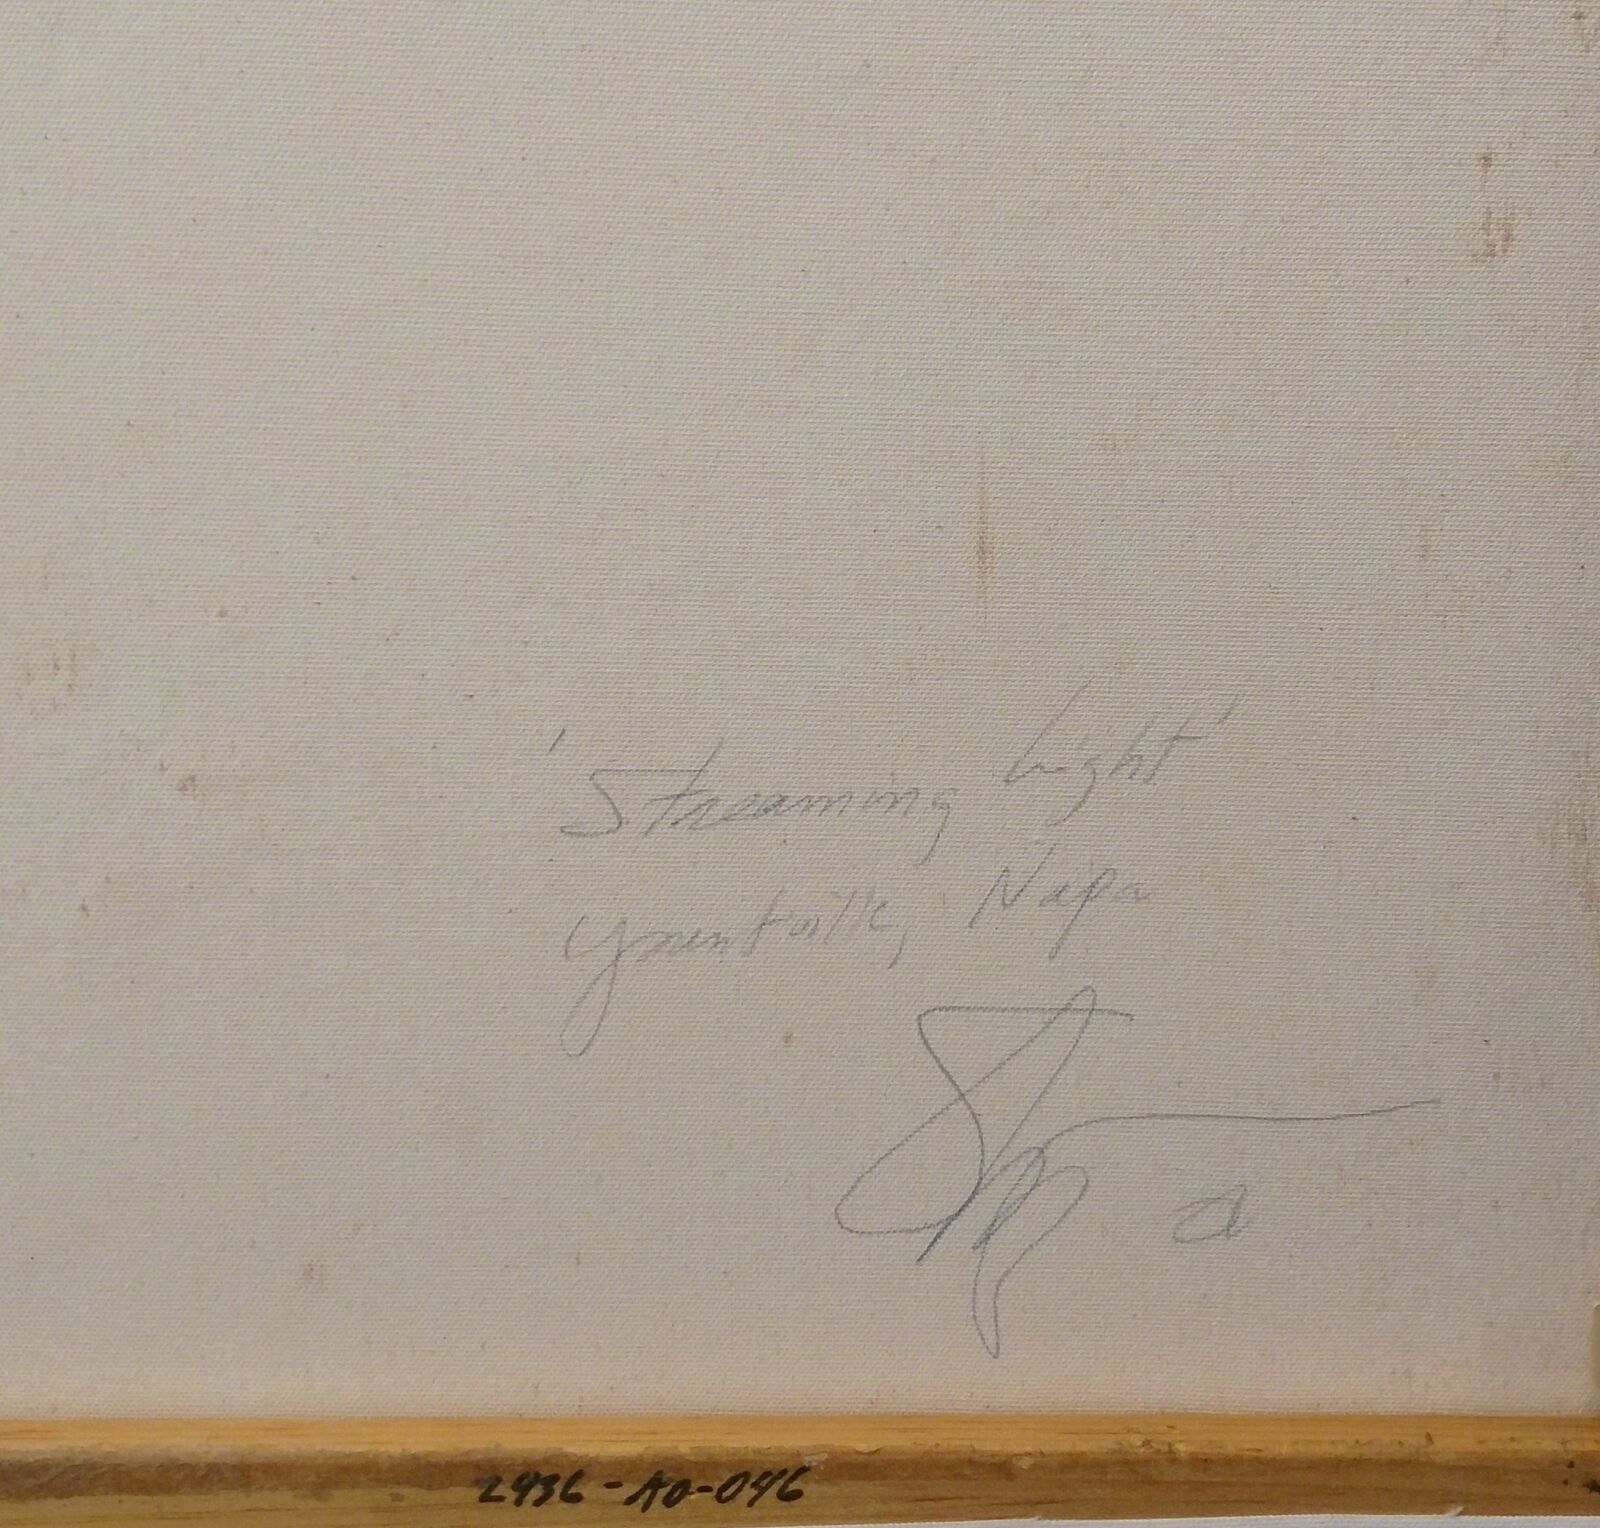 'Streaming Light'
Yountville, Napa
2936-AO-046